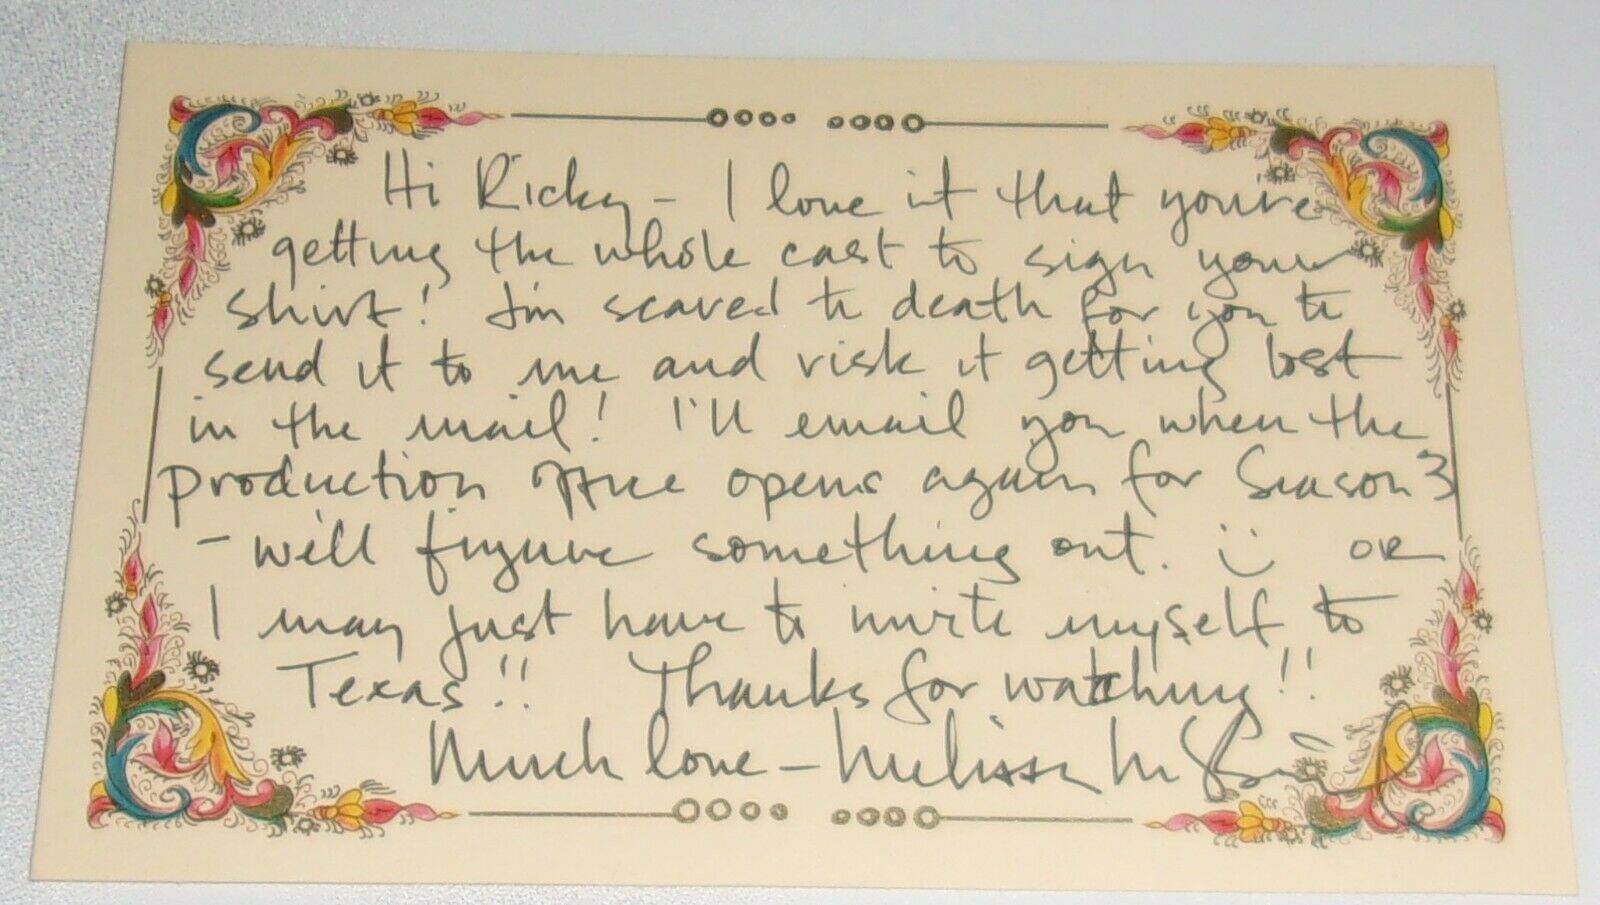 Hi Ricky - I love it that you're
getting the whole cast to sign your
shirt! I'm scared to death for you to
send it to me and risk it getting lost
in the mail! I'll email you when the
production office opens again for Season 3
- we'll figure something out. :) OR
I may just have to invite myself to
Texas!! Thanks for watching!!
Much love - Melissa M